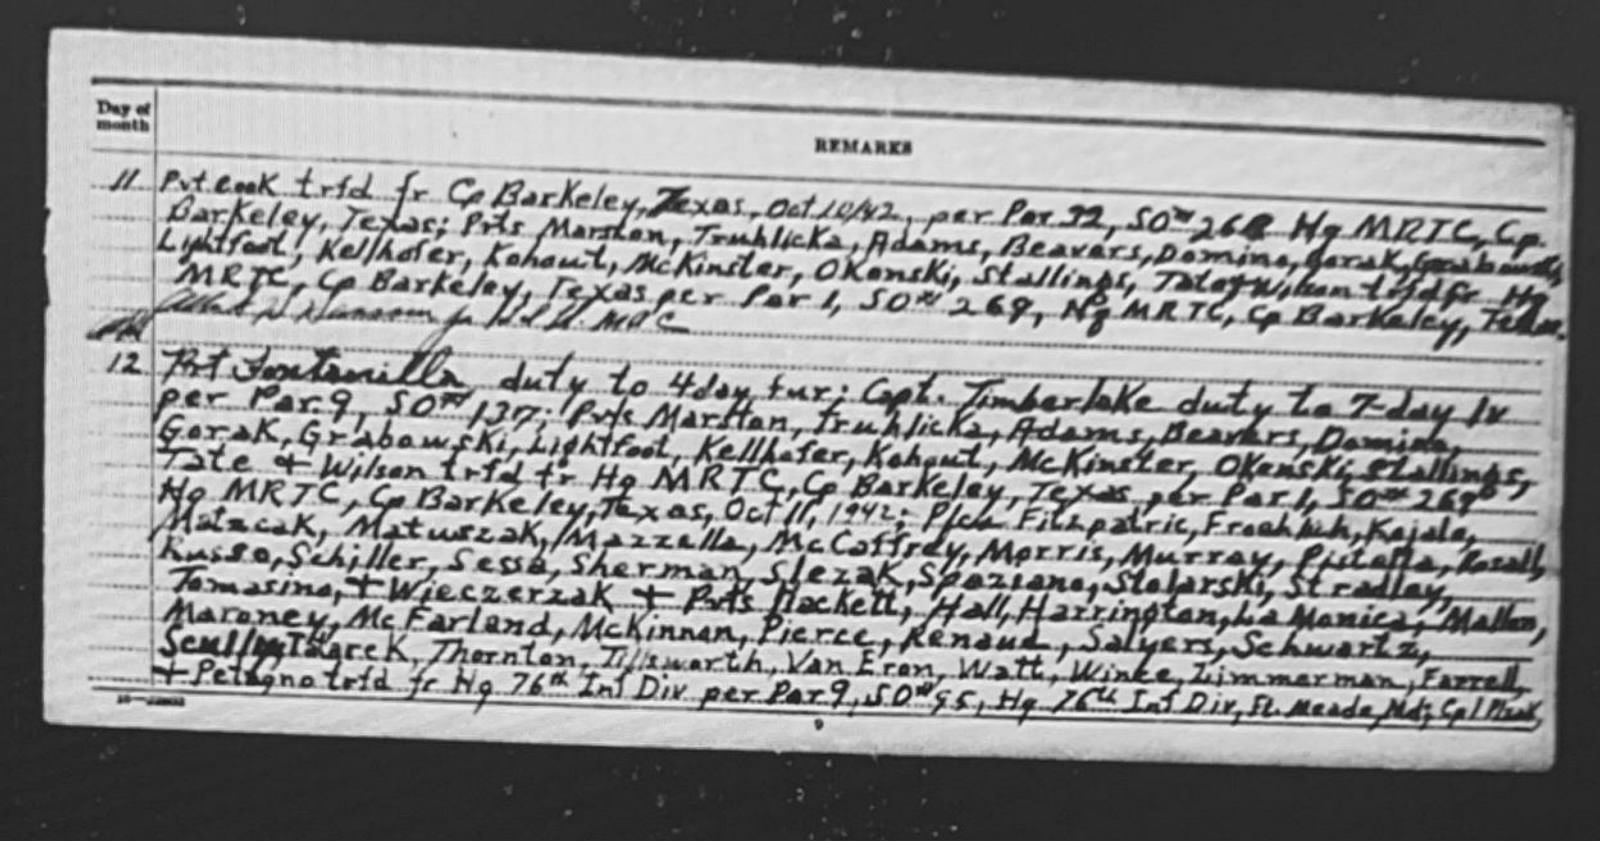 Day of
month
REMARKS
11 Pvt Cook trfd fr Cp Barkeley, Texas, Oct 10/42, per Par 32, SO # 268 Hq MRTC, Cp
Barkeley, Texas; Pvts Marston, Truhlicka, Adams, Beavers, Domino, Gorak, Grabowski,
Lightfoot, Kellhofer, Kohout, McKinster, Okonski, Stallings, Tate + Wilson trfd fr Hq
MRTC, Cp Barkeley, Texas per Par 1, SO # 269, Hq MRTC, Cp Barkeley, Texas.
Jr
12 Pvt Fontanilla duty to 4 day fur; Capt. Timberlake duty to 7-day lv
per Par. 9, SO # 137; Pvts Marston, Truhlicka, Adams, Beavers, Domino,
Gorak, Grabowski, Lightfoot, Kellhofer, Kohout, McKinster, Okonski, Stallings,
Tate + Wilson trfd fr Hq MRTC, Cp Barkeley, Texas per Par 1, SO # 269
Hq MRTC, Cp Barkeley, Texas, Oct 11, 1942; Pfcs Fitzpatric, Kajala,
Matacak, Matuszak, Mazzella, McCaffrey, Morris, Murray, Pistella,
Russo, Schiller, Sessa, Sherman, Slezak, Spaziano, Stolarski, Stradley,
Tomasino, + Wieczerzak + Pvts Hackett, Hall, Harrington, La Monica, Mallon,
Maroney, McFarland, McKinnon, Pierce, Renaud, Salyers, Schwartz,
Scullin, Thornton, Tillsworth, Van Eron, Watt, Winke, Zimmerman, Farrell,
+ Petagno trfd fr Hq 76th Inf Div per Par 9, SO # 95, Hq 76th Inf Div, Ft. Meade, Md; Cpl
9